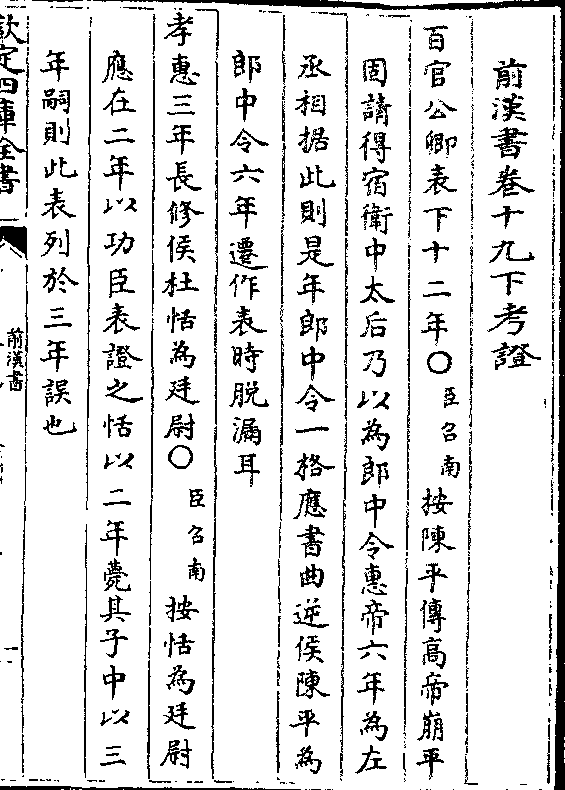 前漢書卷十九下考證
百官公卿表下十二年〇臣召南按陳平傳高帝崩平
固請得宿衛中太后乃以為郎中令惠帝六年為左
丞相據此則是年郎中令一格應書曲逆侯陳平為
郎中令六年遷作表時脱漏耳
孝惠三年長修侯杜恬為廷尉〇臣召南按恬為廷尉
應在二年以功臣表證之恬以二年薨其子中以三
年嗣則此表列於三年誤也
欽定四庫全書
前漢書